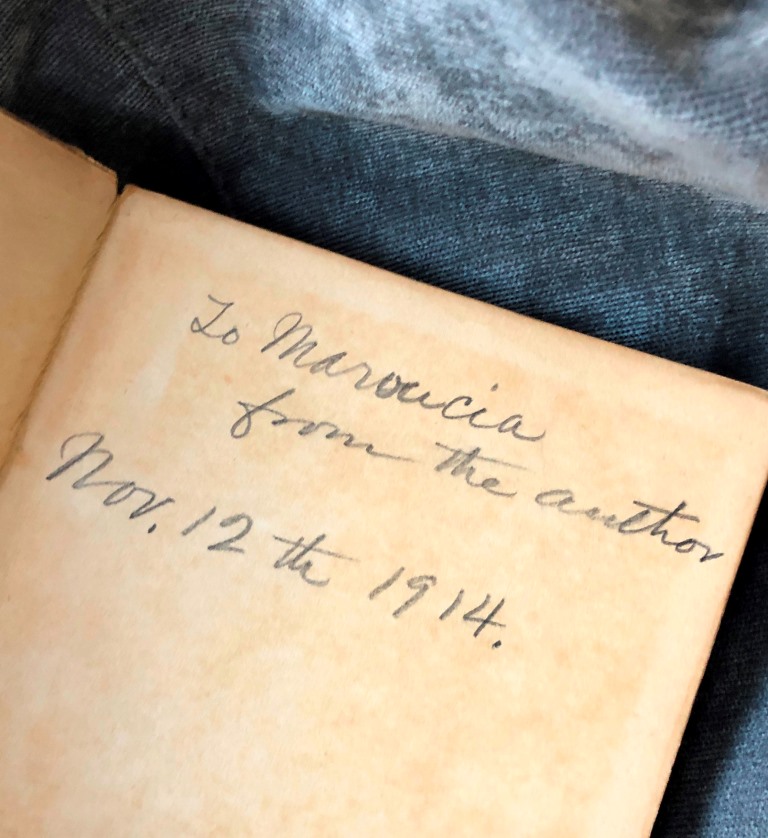 To Maroucia
from the author
Nov. 12th 1914.